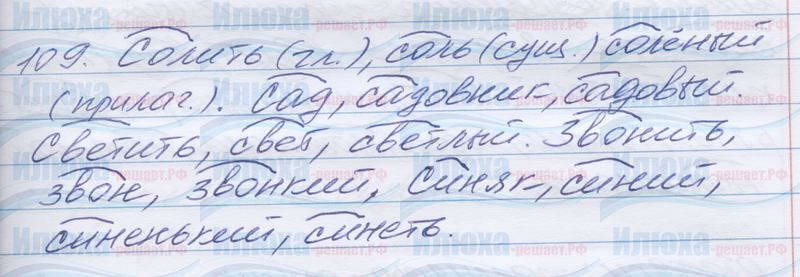 109. Солить (гл.), соль (сущ.) солёный
(прилаг.). Сад, садовник, садовый.
Светить, свет, светлый. Звонить,
звон, звонкий, Синяк, синий,
синенький, синеть.